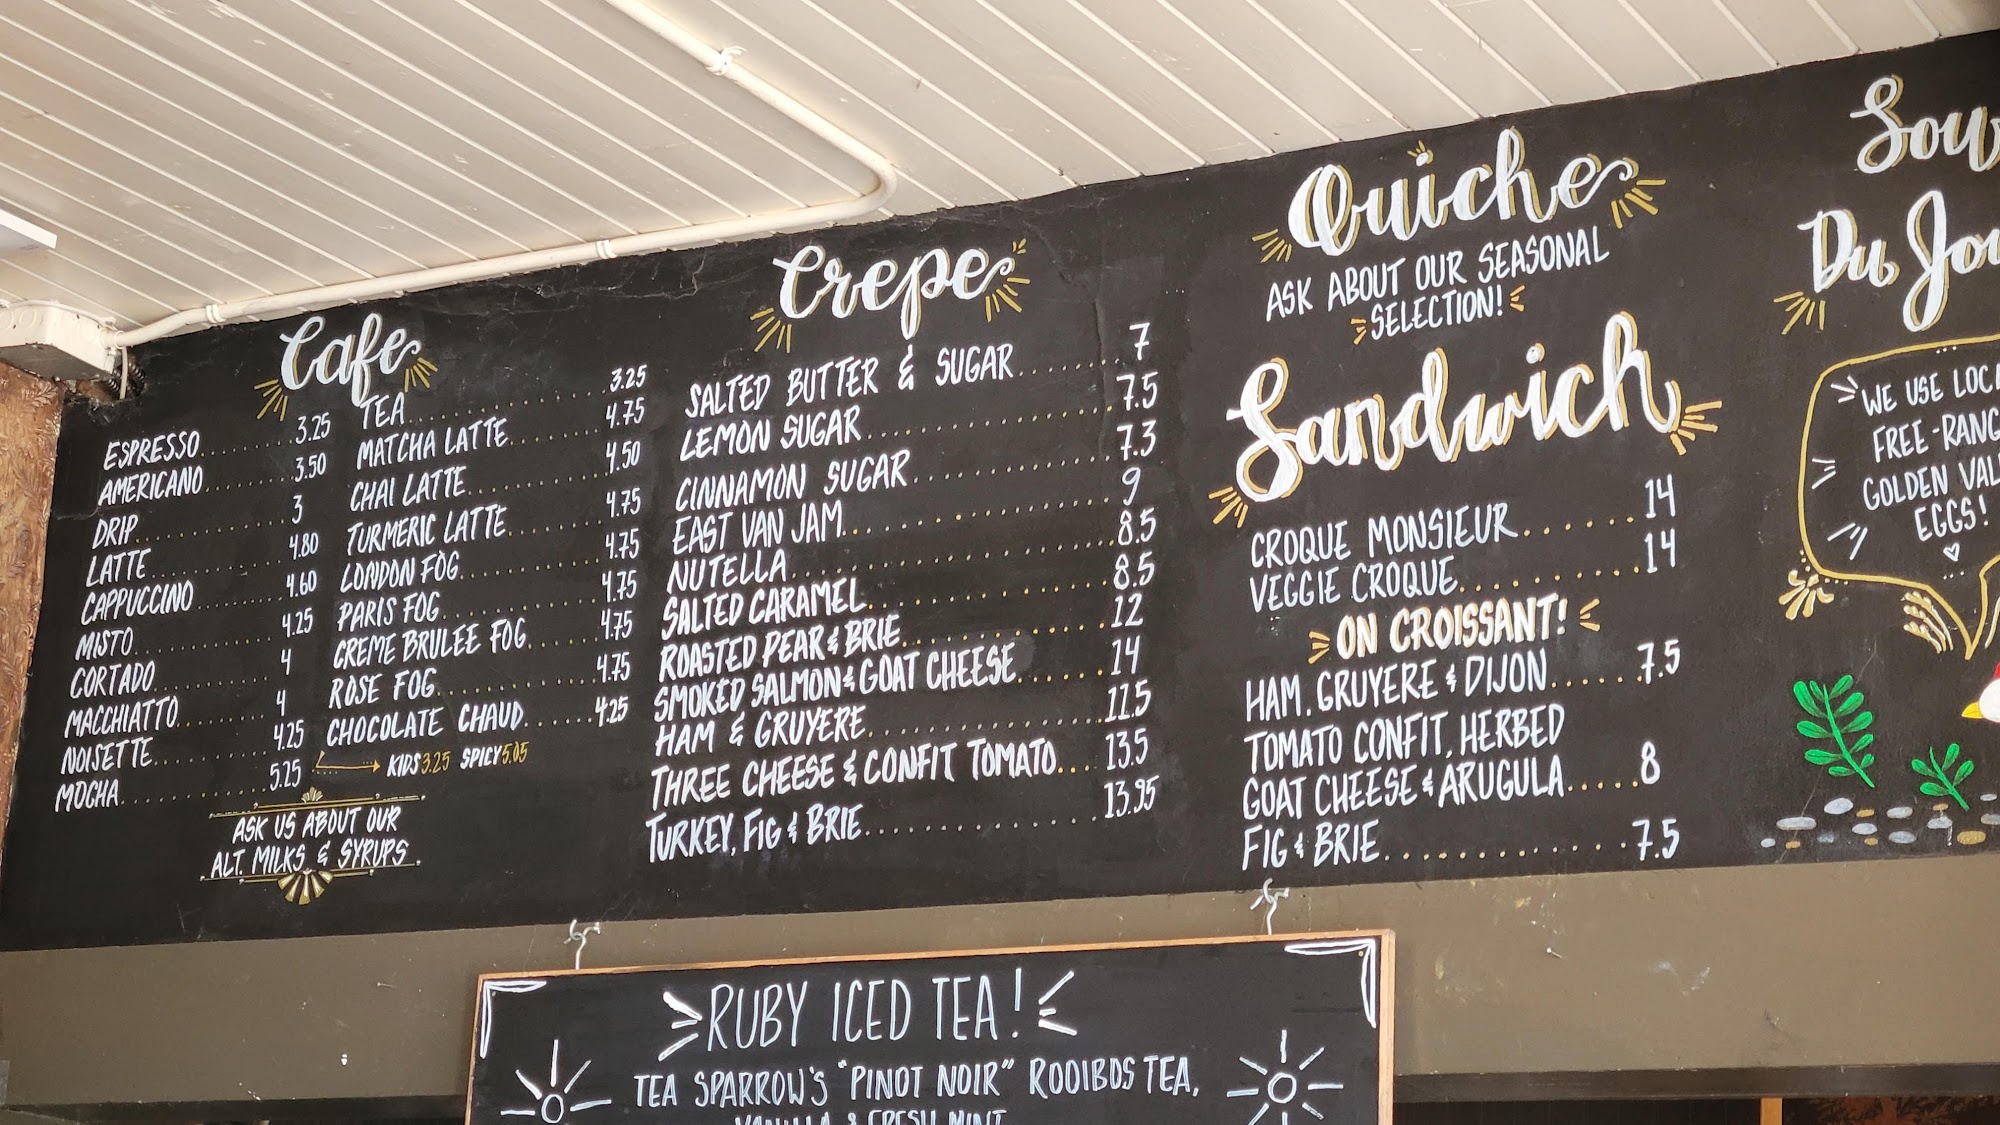 Cafe
ESPRESSO 3.25
AMERICANO 3.50
DRIP 3
LATTE 4.80
CAPPUCCINO 4.60
MISTO 4.25
CORTADO 4
MACCHIATTO 4
NOISETTE 4.25
MOCHA 5.25
TEA 3.25
MATCHA LATTE 4.75
CHAI LATTE 4.50
TURMERIC LATTE 4.75
LONDON FOG 4.75
PARIS FOG 4.75
CREME BRULEE FOG 4.75
ROSE FOG 4.75
CHOCOLATE CHAUD 4.25
KIDS 3.25 SPICY 5.05
ASK US ABOUT OUR
ALT. MILKS & SYRUPS
Crepe
SALTED BUTTER & SUGAR 7
LEMON SUGAR 7.5
CINNAMON SUGAR 7.3
EAST VAN JAM 9
NUTELLA 8.5
SALTED CARAMEL 8.5
ROASTED PEAR & BRIE 12
SMOKED SALMON & GOAT CHEESE 14
HAM & GRUYERE 11.5
THREE CHEESE & CONFIT TOMATO 13.5
TURKEY, FIG & BRIE 13.95
Quiche
ASK ABOUT OUR SEASONAL
SELECTION!
Sandwich
CROQUE MONSIEUR 14
VEGGIE CROQUE 14
ON CROISSANT!
HAM, GRUYERE & DIJON 7.5
TOMATO CONFIT, HERBED
GOAT CHEESE & ARUGULA 8
FIG & BRIE 7.5
Du
WE USE
FREE-
GOLDEN
EGGS!
RUBY ICED TEA!
TEA SPARROW'S "PINOT NOIR" ROOIBOS TEA,
VANILLA & FRESH MINT